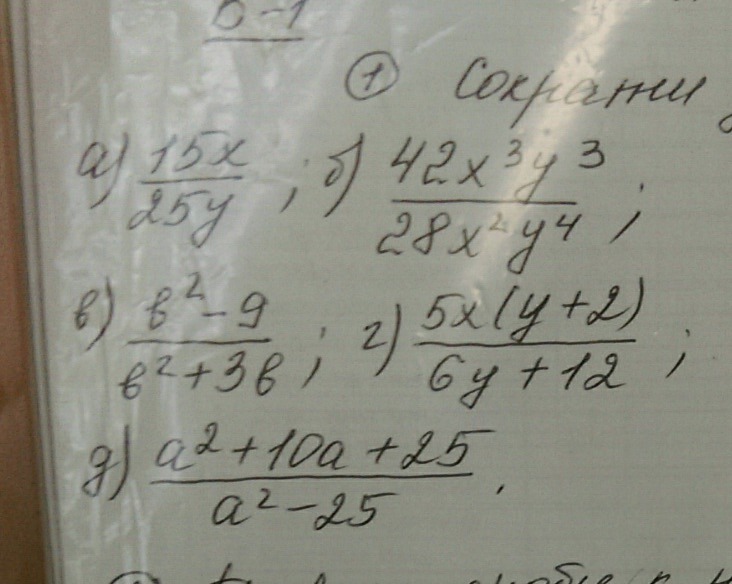 ① Сократи
а) 15x/25y ; б) 42x³y³/28x²y⁴ ;
в) в²-9/в²+3в ; г) 5x(y+2)/6y+12 ;
д) a²+10a+25/a²-25 .